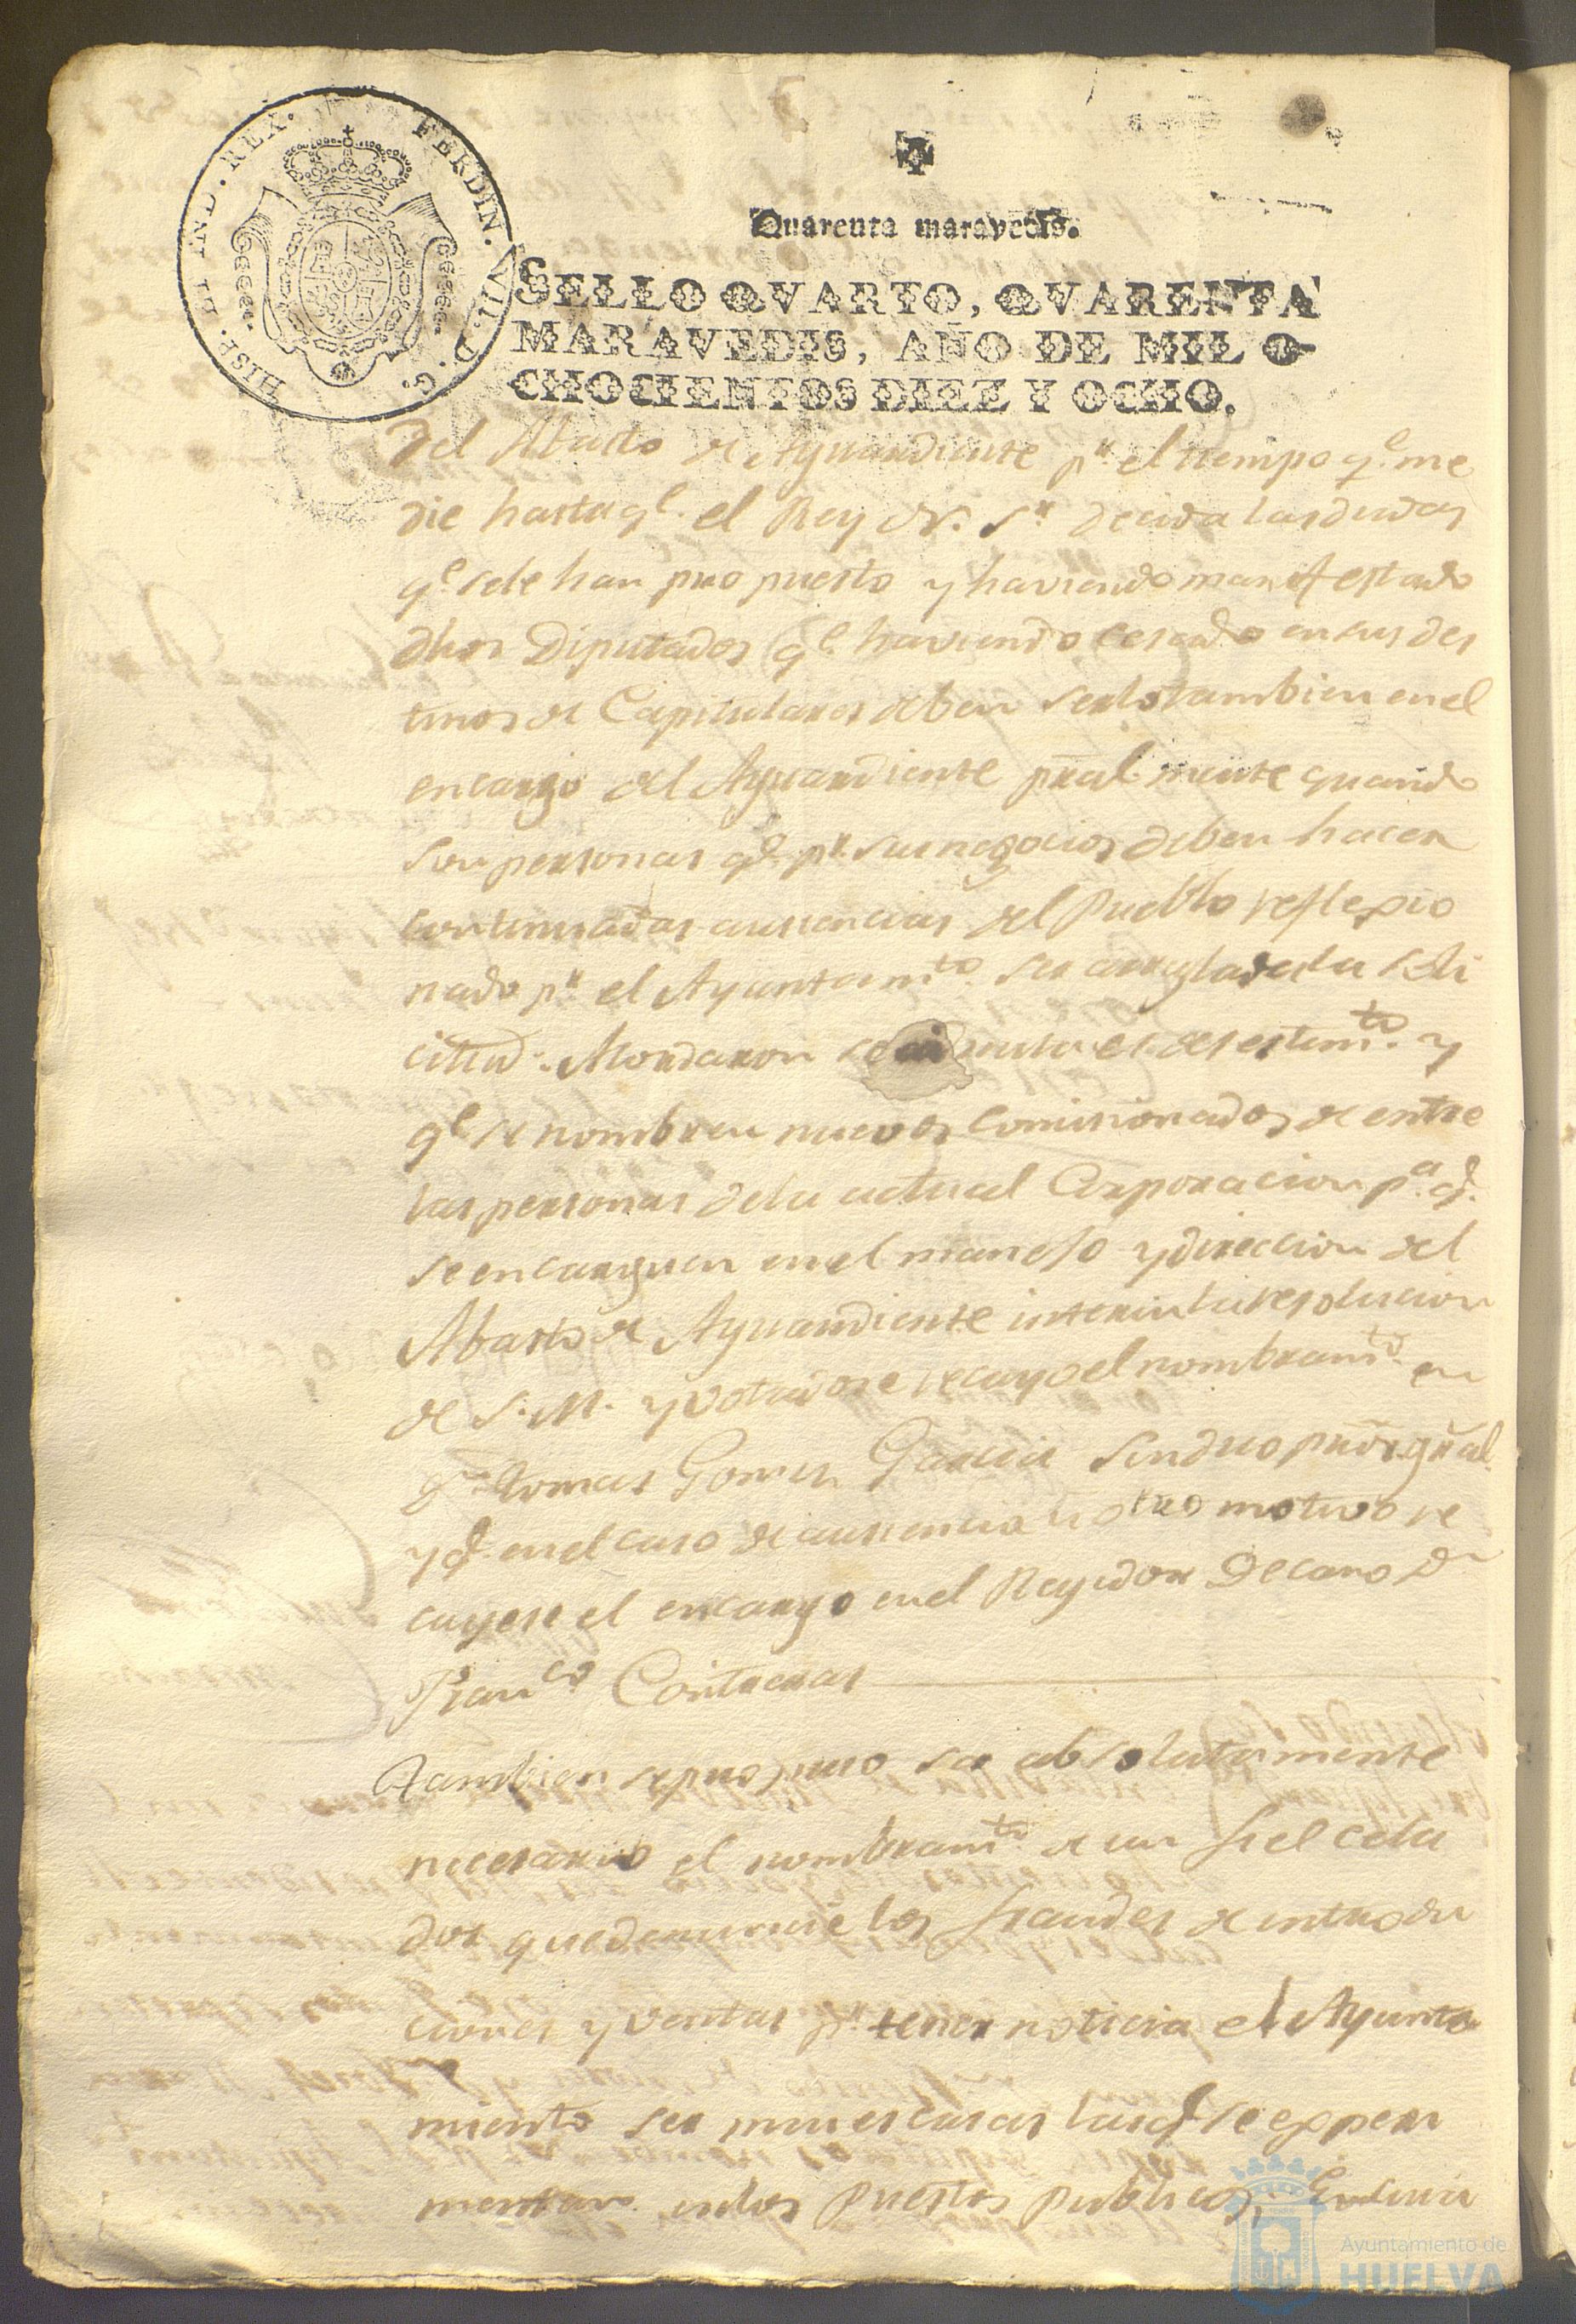 HISP. ET IND. REX. FERDIN. VII. D. G.
Quarenta maravedis.
SELLO QVARTO, QVARENTA
MARAVEDIS, AÑO DE MIL O-
CHOCIENTOS DIEZ Y OCHO.
del Abasto de Aguardiente pr. el tiempo qe. me
die hasta qe. el Rey N. Sr. decida las dudas
qe. sele han propuesto y haviendo manifestado
dhos Diputados qe. haviendo cesado en sus des
tinos de Capitulares deben serlo tambien en el
encargo del Aguardiente pralmente quando
son personas qe. pr. sus negocios deben hacer
continuadas ausencias del Pueblo reflexio
nado pr. el Ayuntamto. ser arreglada la soli
citud: Acordaron se admita el desestimto. y
qe. se nombren nuevos Comisionados de entre
las personas dela actual Corporacion pa. qe.
se encarguen en el manejo y direccion del
Abasto de Aguardiente interin la resolucion
de S. M. y votadose recayo el nombramto. en
Dn. Tomas Gomez Garcia Sindico prôr. gral.
y qe. en el caso de ausencia u otro motivo re
cayese el encargo en el Regidor Decano Dn.
Franco. Contreras
Tambien se propuso ser absolutamente
necesario el nombramto. de un fiel cela
dor que denuncie los fraudes de introdu
ciones y ventas pr. tener noticia el Ayunta
miento ser mui escasas las qe. se experi
mentan en los puestos publicos,
Ayuntamiento de
HUELVA